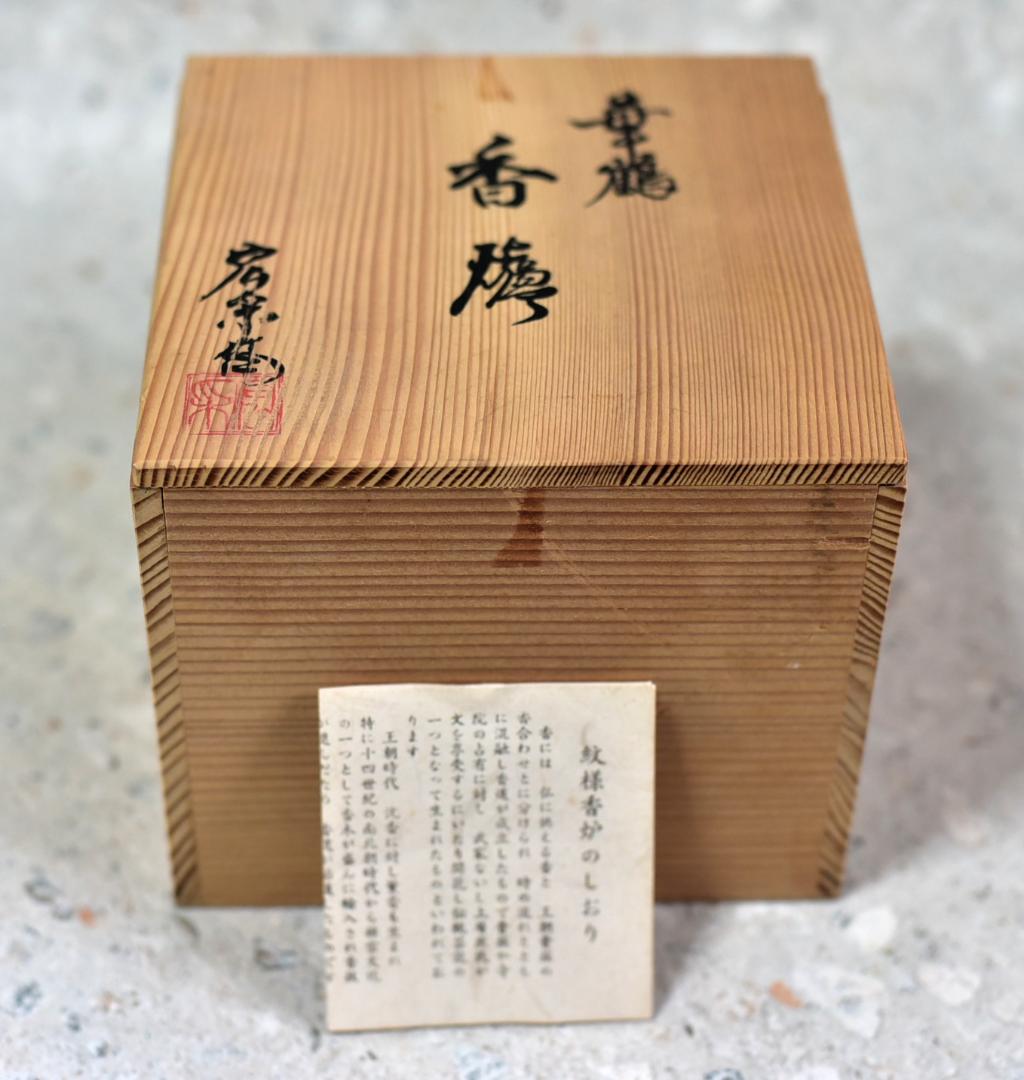 華鶴
香爐
紋様香炉のしおり
香には 仏に供える香と 王朝貴族の
香合わせとに分けられ 時の流れととも
に混融し香道が成立したもので貴族や寺
院の占有に対し 武家ないし上層庶民が
文を享受するにいたり開花し伝観芸能の
一つとなって生まれたものといわれてお
ります
王朝時代 沈香に対し薫香も生まれ
特に十四世紀の南北朝時代から禅宗文化
の一つとして香木が盛んに輸入され貴族